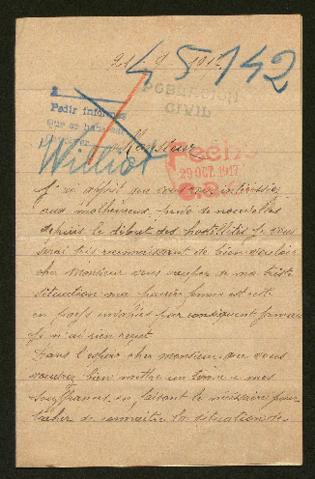 21-9-1917
45142
POBLACION
CIVIL
Pedir informes
Monsieur
Williot
Fecha
29 OCT. 1917
J'ai appris que vous vous intéressiez
aux malheureux, privés de nouvelles
depuis le début des hostilités je vous
serai très reconnaissant de bien vouloir
cher Monsieur vous occuper de ma triste
situation ma pauvre femme est resté
en pays envahis par conséquent jamais
je n'ai rien reçut
Dans l'espoir cher monsieur que vous
voudrez bien mettre un terme a mes
souffrances en faisant le nécessaire pour
tacher de connaitre la situation de